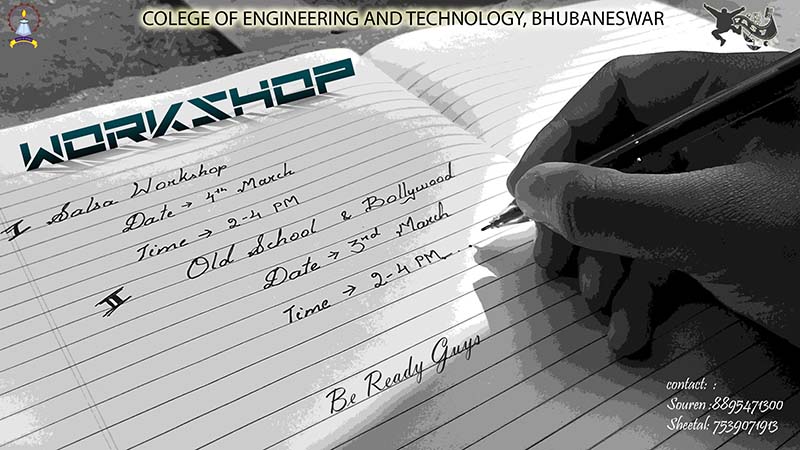 COLEGE OF ENGINEERING AND TECHNOLOGY, BHUBANESWAR
WORKSHOP
I Salsa Workshop
Date → 4th March
Time → 2-4 PM
II Old School & Bollywood
Date → 3rd March
Time → 2-4 PM....
Be Ready Guys
contact: :
Souren :8895471300
Sheetal: 7539071913